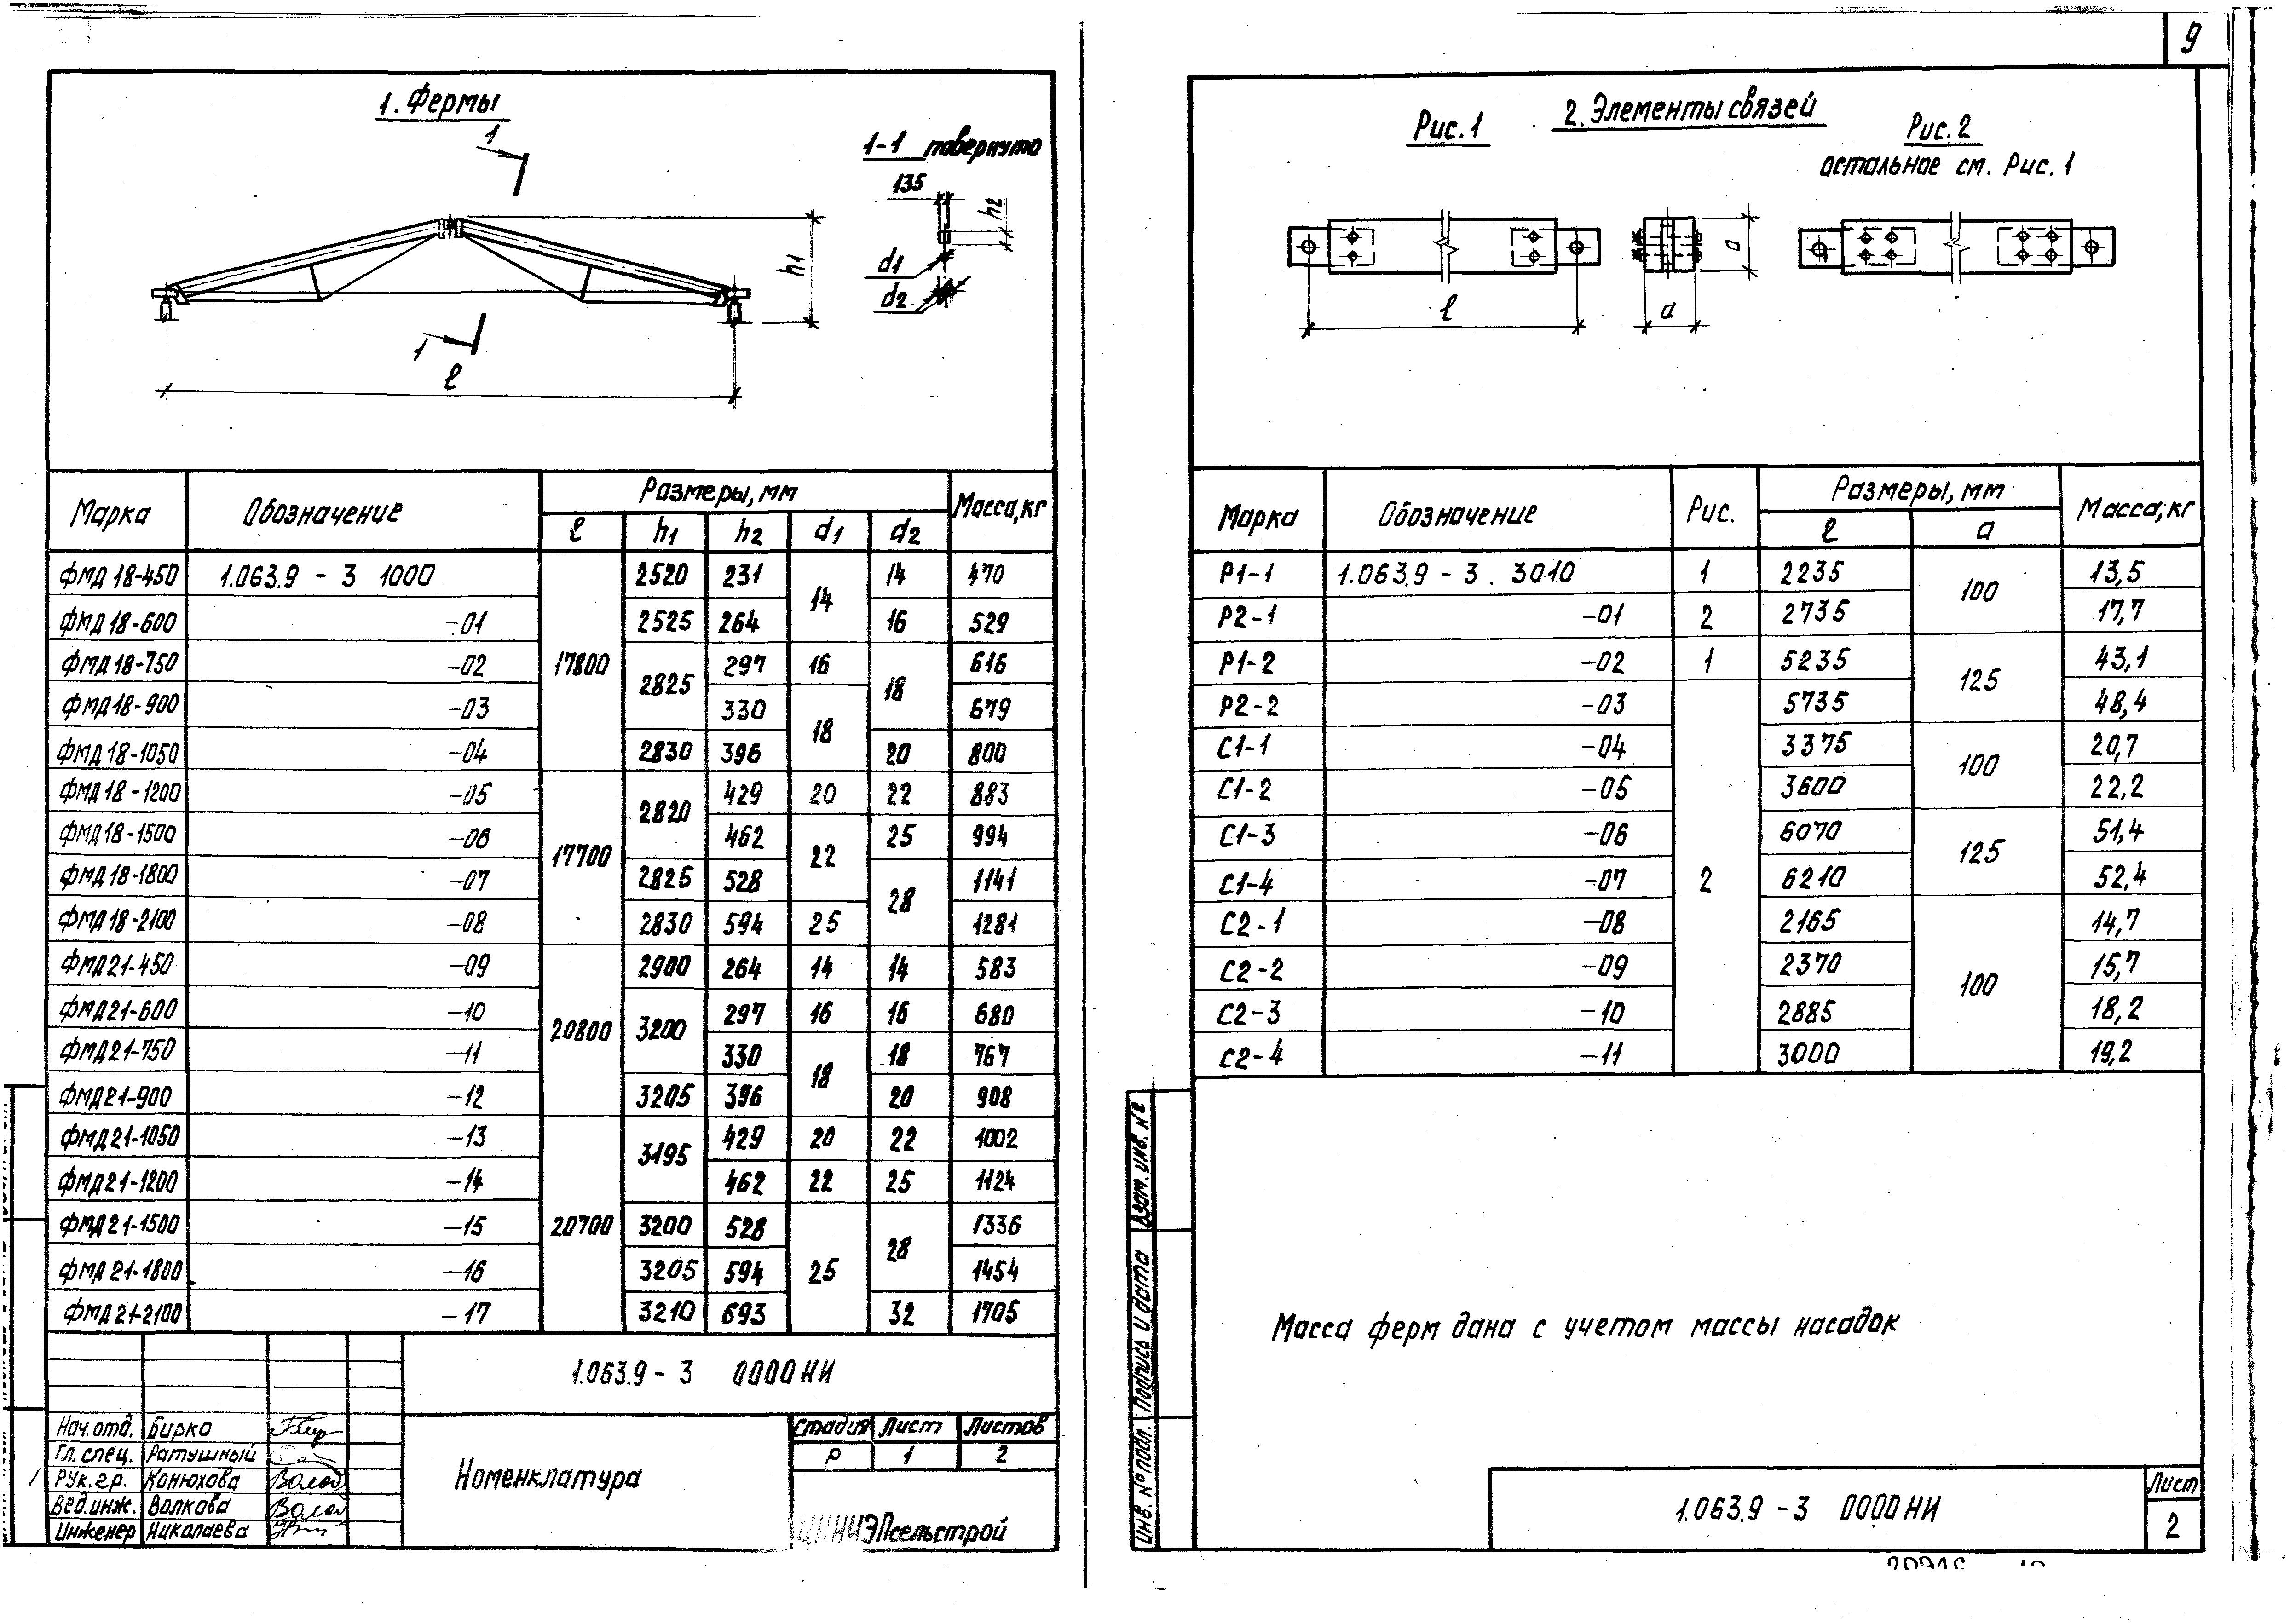 1. Фермы
1
1-1 повернуто
135
h2
h1
d1
d2
1
ℓ
Марка Обозначение Размеры, мм Масса, кг
ℓ h1 h2 d1 d2
ФМД 18-450 1.063.9 - 3 1000 17800 2520 231 14 14 470
ФМД 18-600 -01 2525 264 16 529
ФМД 18-750 -02 2825 297 16 18 616
ФМД 18-900 -03 330 18 679
ФМД 18-1050 -04 2830 396 20 800
ФМД 18-1200 -05 17700 2820 429 20 22 883
ФМД 18-1500 -06 462 22 25 994
ФМД 18-1800 -07 2825 528 28 1141
ФМД 18-2100 -08 2830 594 25 1281
ФМД 21-450 -09 20800 2900 264 14 14 583
ФМД 21-600 -10 3200 297 16 16 680
ФМД 21-750 -11 330 18 18 767
ФМД 21-900 -12 3205 396 20 908
ФМД 21-1050 -13 20700 3195 429 20 22 1002
ФМД 21-1200 -14 462 22 25 1124
ФМД 21-1500 -15 3200 528 25 28 1336
ФМД 21-1800 -16 3205 594 1454
ФМД 21-2100 -17 3210 693 32 1705
1.063.9 - 3 0000НИ
Нач. отд. Бирко
Гл. спец. Ратушный
Рук. гр. Конюхова
Вед. инж. Волкова
Инженер Николаева
Номенклатура
Стадия Лист Листов
Р 1 2
ЦНИИЭПсельстрой
9
2. Элементы связей
Рис. 1
Рис. 2
остальное см. Рис. 1
ℓ
а
а
Марка Обозначение Рис. Размеры, мм Масса, кг
ℓ а
Р1-1 1.063.9 - 3. 3010 1 2235 100 13,5
Р2-1 -01 2 2735 17,7
Р1-2 -02 1 5235 125 43,1
Р2-2 -03 2 5735 48,4
С1-1 -04 3375 100 20,7
С1-2 -05 3600 22,2
С1-3 -06 6070 125 51,4
С1-4 -07 6210 52,4
С2-1 -08 2165 100 14,7
С2-2 -09 2370 15,7
С2-3 -10 2885 18,2
С2-4 -11 3000 19,2
Масса ферм дана с учетом массы насадок
Взам. инв. №
Подпись и дата
Инв. № подл.
1.063.9 - 3 0000НИ
Лист
2